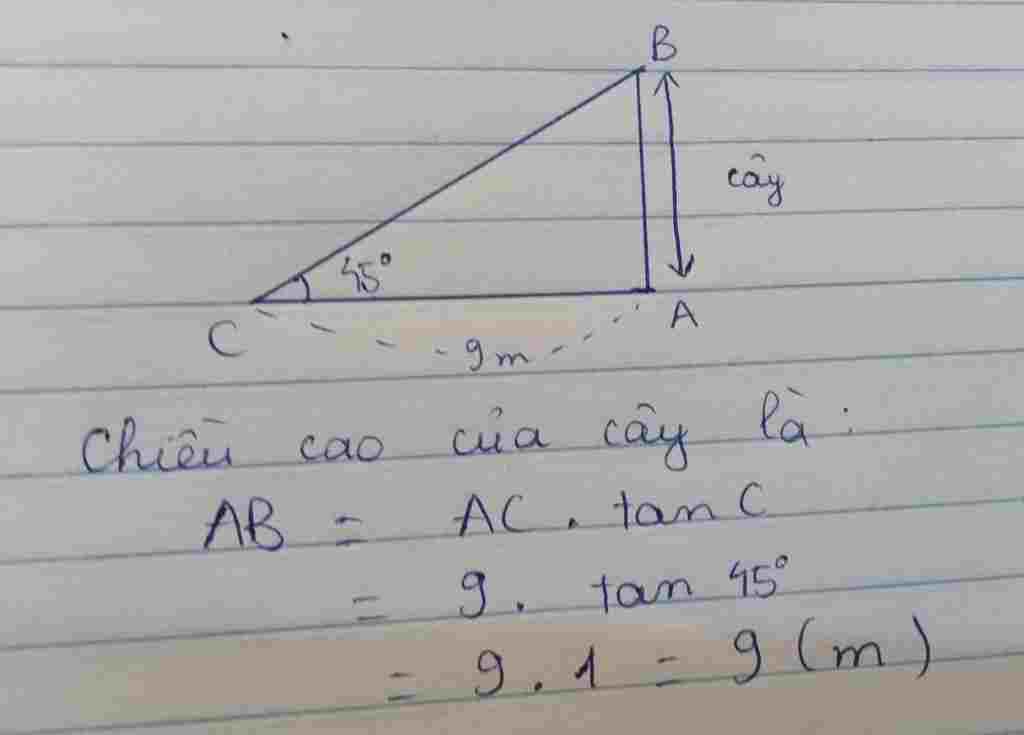 B
cây
45°
C
A
9m
Chiều cao của cây là:
AB = AC . tan C
= 9. tan 45°
= 9.1 = 9 (m)